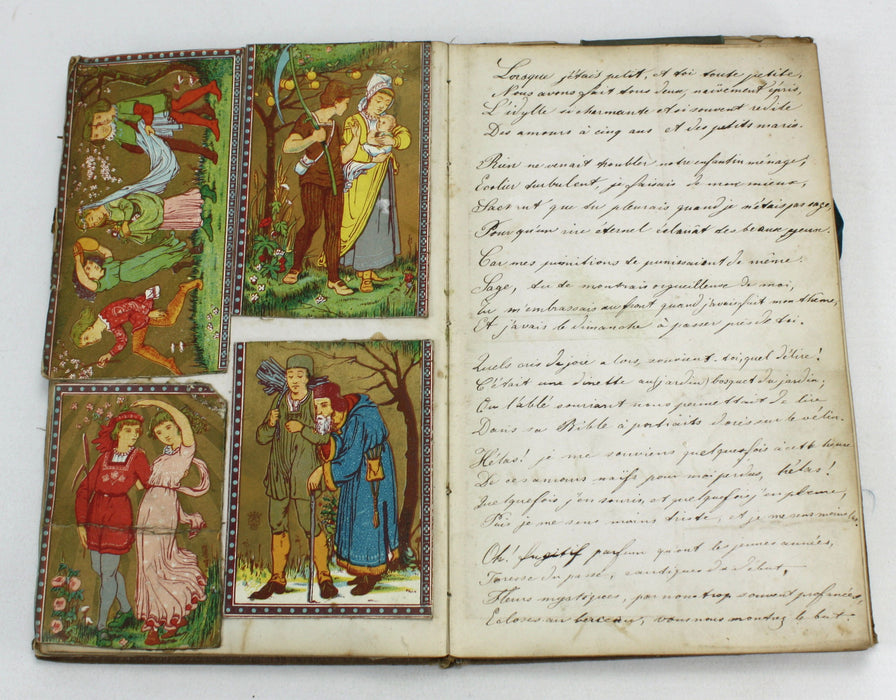 Lorsque j'étais petit, et toi toute petite,
Nous avons fait tous deux, naïvement épris,
L'idylle si charmante et si souvent redite
Des amours à cinq ans et des petits maris.
Rien ne venait troubler notre enfantin ménage;
Ecolier turbulent, je faisais de mon mieux,
tu pleurais quand je n'étais pas sage
Pour qu'un rire éternel éclairât des beaux yeux.
Car mes punitions te punissaient de même.
Sage, tu te montrais orgueilleuse de moi,
Tu m'embrassais au front quand j'avais fait mon thème,
Et j'avais le dimanche à passer près de toi.
Quels cris de joie alors, souvient-toi, quel délire!
C'était une dinette au (jardin) bosquet du jardin;
Où l'abbé souriant nous permettait de lire
Dans sa Bible à portraits dorés sur le vélin.
Hélas! je me souviens quelquefois à cette heure
De ces amours naïfs pour moi perdus, hélas!
Quelquefois j'en souris, et quelquefois j'en pleure,
Puis je me sens moins triste, et je me sens moins
Oh! fugitif parfum qu'ont les jeunes années,
du passé, cantiques du début,
Fleurs mystiques, par nous trop souvent profanées,
Ecloses au berceau, vous nous montrez le but.